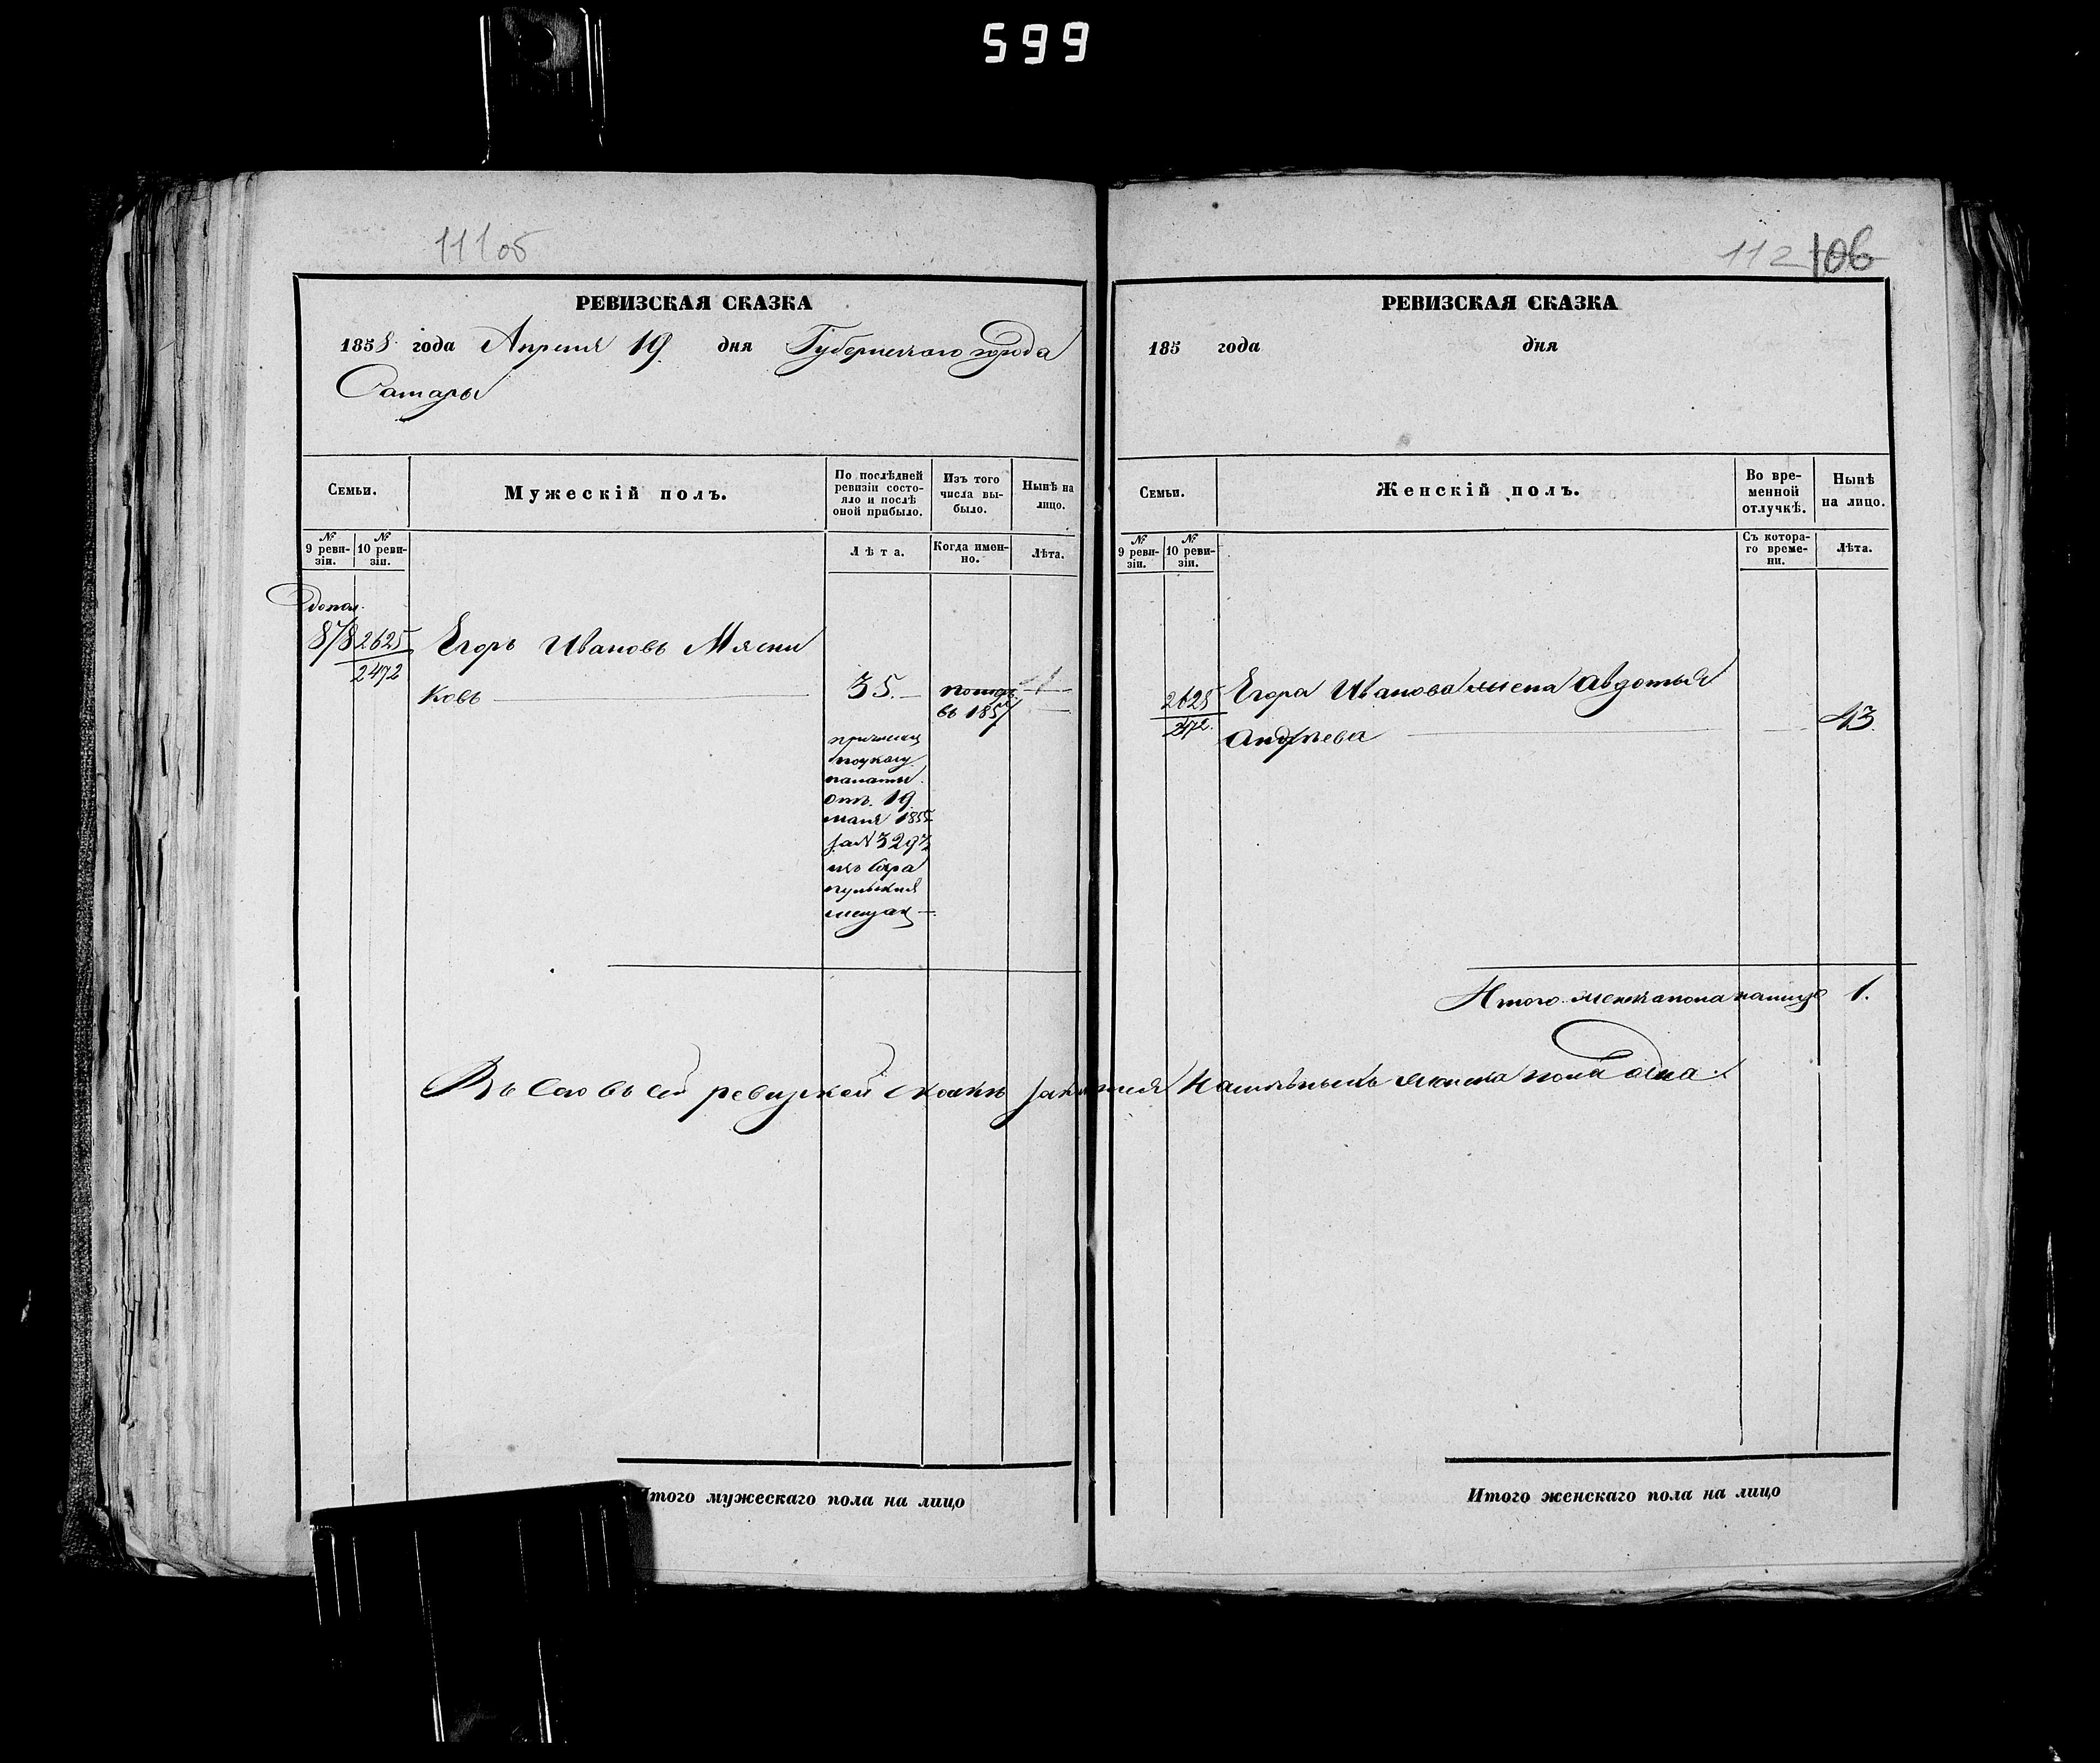 599
111об
РЕВИЗСКАЯ СКАЗКА
1858 года Апреля 19 дня Губернского города
Самары
Семьи.
Мужескій полъ.
По послѣдней ревизіи состояло и послѣ оной прибыло.
Изъ того числа выбыло.
Нынѣ на лицо.
№ 9 ревизіи.
№ 10 ревизіи.
Лѣта.
Когда именно.
Лѣта.
допол.
878 2625
2472
Егоръ Ивановъ Мясни
ковъ
35.
въ 1857
причислен
по указу
палаты
отъ 19
мая 1855
за № 3293
изъ Сара
пульских
мещан
Итого мужескаго пола на лицо
112 106
РЕВИЗСКАЯ СКАЗКА
185 года дня
Семьи.
Женскій полъ.
Во временной отлучкѣ.
Нынѣ на лицо.
№ 9 ревизіи.
№ 10 ревизіи.
Съ котораго времени.
Лѣта.
2625
2472.
Егора Иванова жена Авдотья
Андрѣева
43.
Итого женска пола налицо 1.
Всего въ сей ревизской сказкѣ наличныхъ женска пола одна.
Итого женскаго пола на лицо